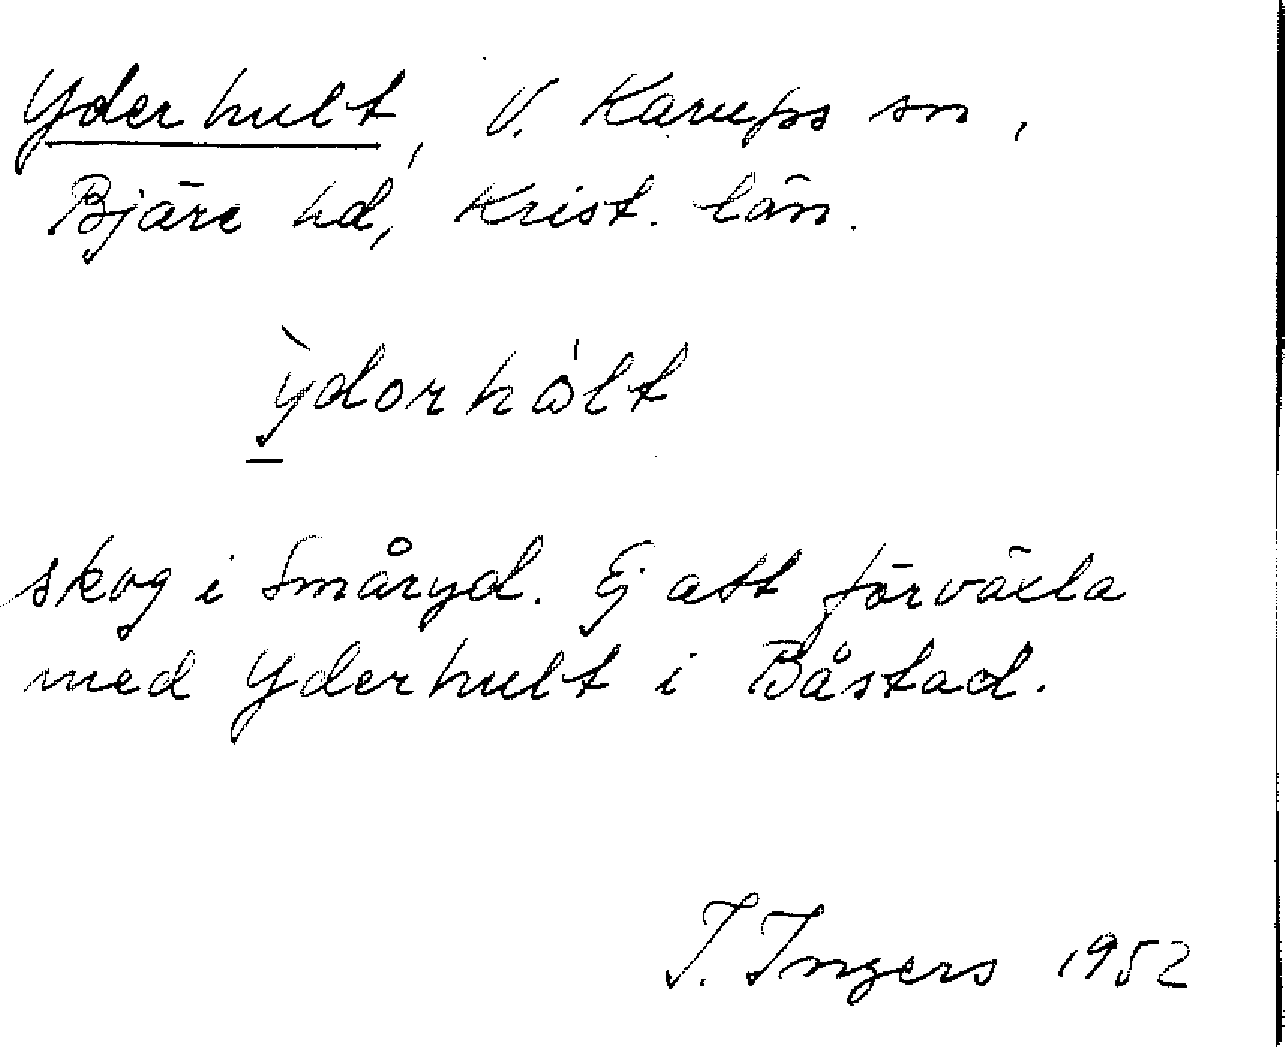 Yderhult, V. Karups sn,
Bjäre hd, Krist. län.
ỳdorhålt
skog i Småryd. Ej att förväxla
med Yderhult i Båstad.
I. Ingers 1952